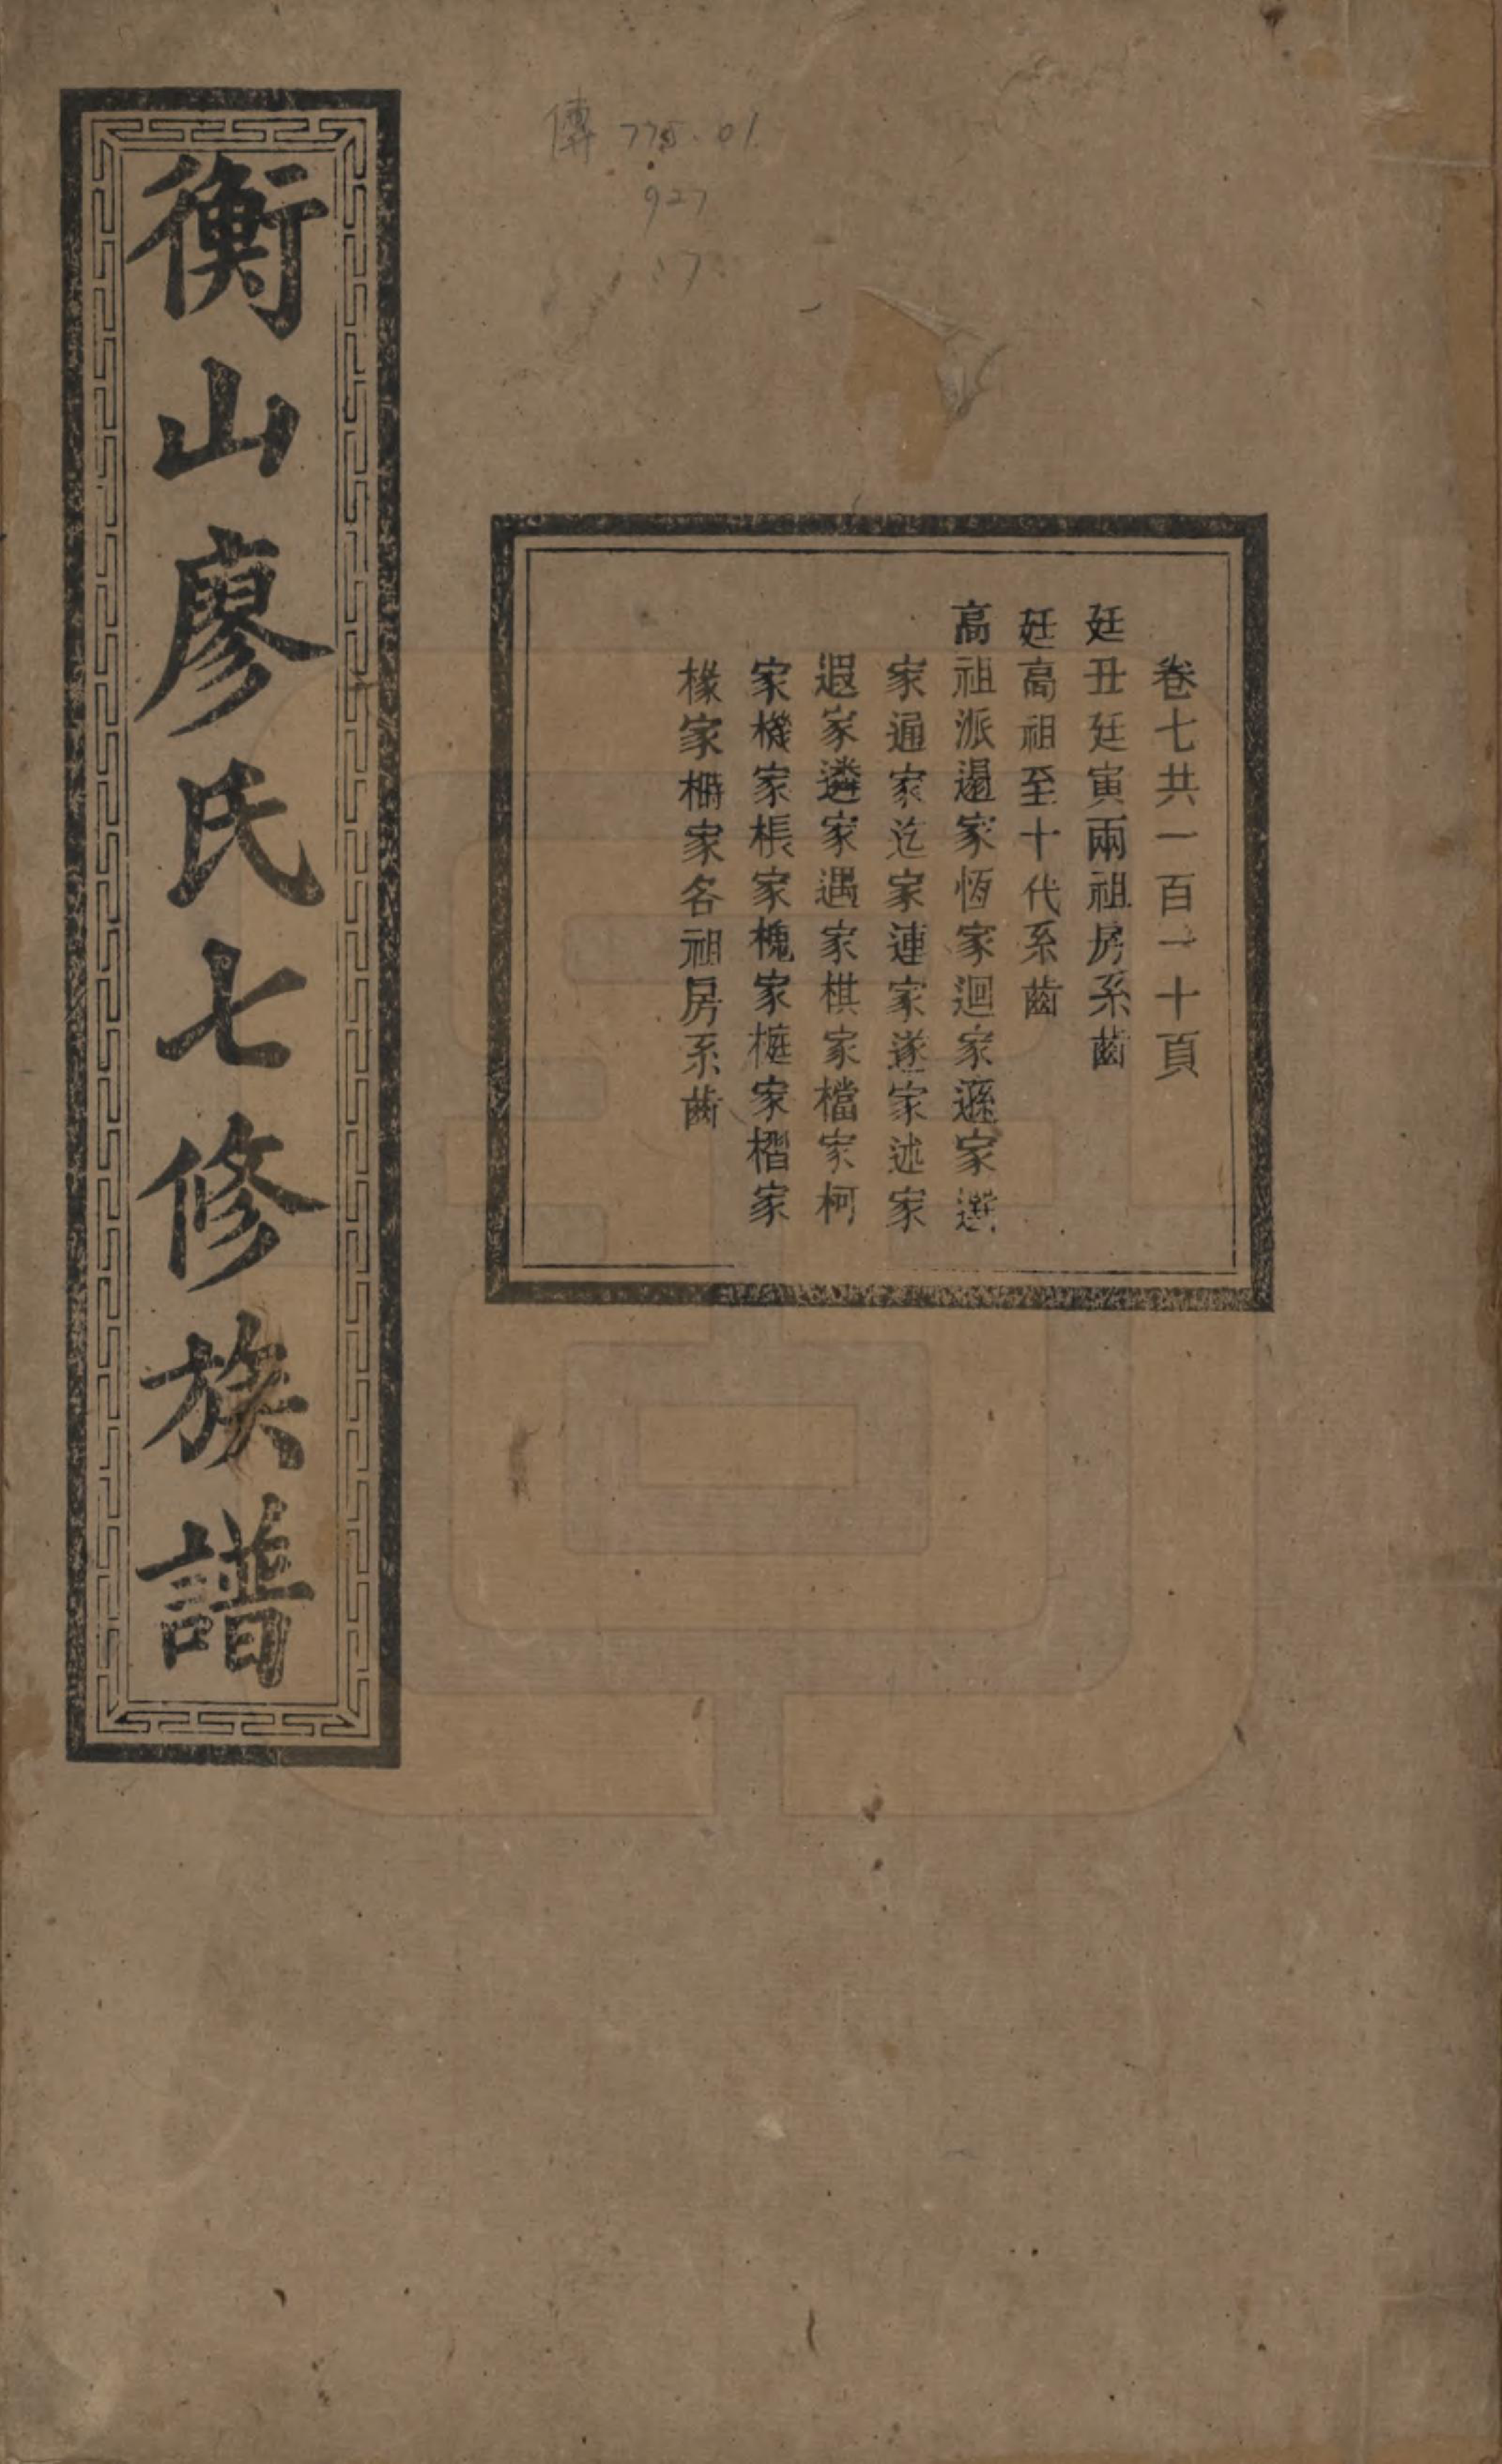 衡山廖氏七修族譜
卷七共一百一十頁
廷丑廷寅兩祖房系齒
廷高祖至十代系齒
高祖派邊家恆家迴家遜家選
家通家迄家連家遂家述家
遐家遴家遇家棋家檔家柯
家機家棖家槐家榳家槢家
椽家槲家各祖房系齒
傳 775.01
927
:7